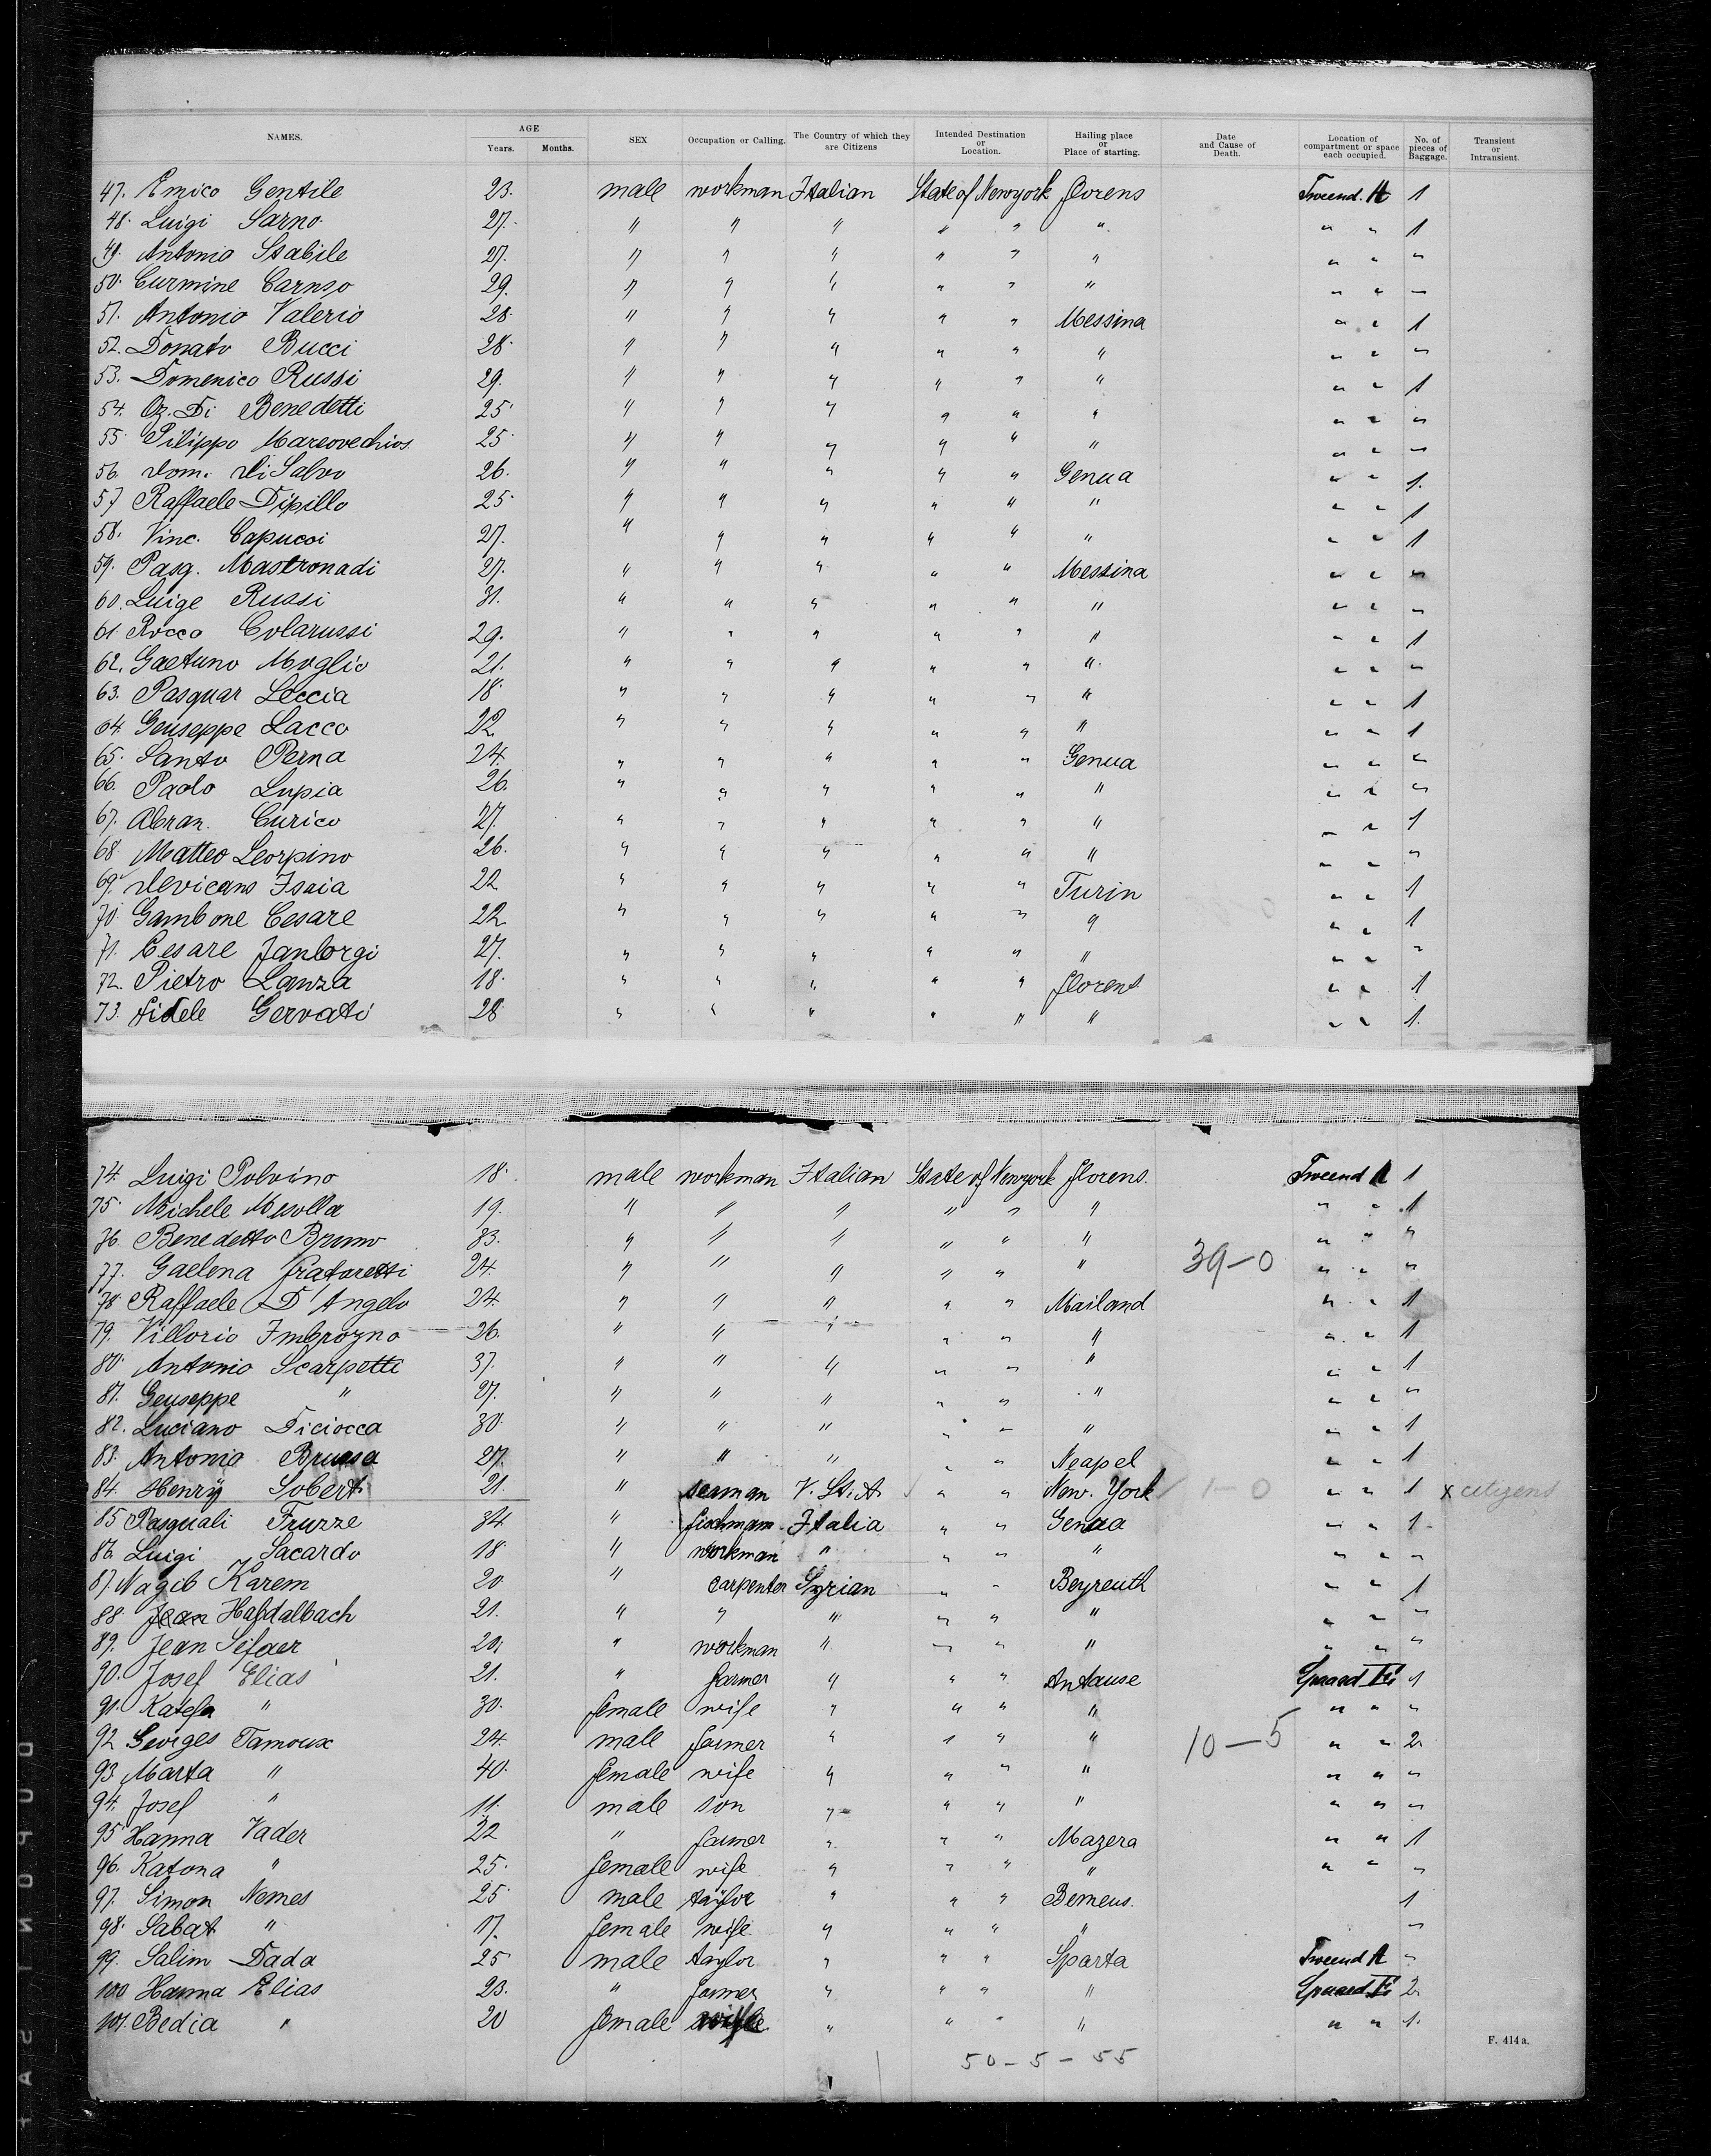 NAMES. AGE Years. Months. SEX Occupation or Calling. The Country of which they are Citizens Intended Destination or Location. Hailing place or Place of starting. Date and Cause of Death. Location of compartment or space each occupied. No. of pieces of Baggage. Transient or Intransient.
47. Emico Gentile 23. male workman Italian State of Newyork florens 1
48. Luigi Sarno 27. " " " " " " " " 1
49. Antonio Stabile 27. " " " " " " " " "
50. Curmine Caruso 29. " " " " " " " " "
51. Antonio Valerio 28. " " " " " Messina " " 1
52. Donato Bucci 28. " " " " " " " " "
53. Domenico Russi 29. " " " " " " " " 1
54. Oz. Di Benedetti 25. " " " " " " " " "
55. Pilippo Marcovechios 25. " " " " " " " " "
56. Dom. Di Salvo 26. " " " " " Genua " " 1.
57 Raffaele Dipillo 25. " " " " " " " " 1
58. Vinc. Capucci 27. " " " " " " " " 1
59. Pasq. Mastronadi 27. " " " " " Messina " " "
60. Luige Russi 31. " " " " " " " " "
61. Rocco Colarussi 29. " " " " " " " " 1
62. Gaetuno Moglio 21. " " " " " " " " "
63. Pasquar Leccia 18. " " " " " " " " 1
64. Geuseppe Lacco 22. " " " " " " " " 1
65. Santo Perna 24. " " " " " Genua " " "
66. Paolo Lupia 26. " " " " " " " " "
67. Abran. Curico 27. " " " " " " " " 1
68. Matteo Scorpino 26. " " " " " " " " "
69. Devicans Isaia 22 " " " " " Turin " " 1
70. Gambone Cesare 22 " " " " " " " " 1
71. Cesare Janlorgi 27. " " " " " " " " "
72. Pietro Lanza 18. " " " " " florens " " 1
73. fidele Gervati 28 " " " " " " " " 1.
74. Luigi Polvino 18. male workman Italian State of Newyork florens. 1
75. Michele Musolla 19. " " " " " " " " 1
76. Benedetto Bruno 33. " " " " " " " " "
77. Gaelena fratoretti 24. " " " " " " 39-0 " " "
78. Raffaele D'Angelo 24. " " " " " Mailand " " 1
79. Villorio Imbrozno 26. " " " " " " " " 1
80. Antonio Scarpetti 37. " " " " " " " " 1
81. Geuseppe " 27. " " " " " " " " "
82. Luciano Diciocca 30. " " " " " " " " 1
83. Antonio Brussa 27. " " " " " Neapel " " 1
84. Henry Sobert 21. " seaman V. St. A " " New. York 1-0 " " 1 x citizens
85 Pasquali Frurze 34 " fischmam Italia " " Genua " " 1
86. Luigi Sacardo 18. " workman " " " " " " "
87. Nagib Karem 20 " carpenter Syrian " " Beyreuth " " 1
88. Jean Hafdalbach 21. " " " " " " " " "
89. Jean Sifaer 20. " workman " " " " " " "
90. Josef Elias 21. " farmer " " " Antause 1
91. Katefa " 30. female wife " " " " " " "
92 Georges Tamoux 24. male farmer " " " " 10-5 " " 2.
93 Marta " 40. female wife " " " " " " "
94. Josef " 11. male son " " " " " " "
95 Hanna Vader 32 " farmer " " " Mazera " " 1
96. Katona " 25. female wife " " " " " " "
97. Simon Nemes 25 male taylor " " " Bemeus. 1
98. Sabat " 17. female wife " " " " "
99. Salim Dada 25 male taylor " " " Sparta "
100 Hanna Elias 23. " farmer " " " " 2.
101. Bedia " 20 female wife " " " " " " 1.
50-5-55
F. 414a.